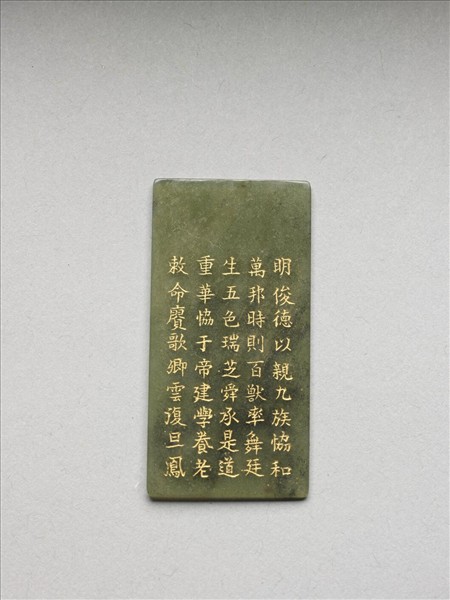 明俊德以親九族協和
萬邦時則百獸率舞廷
生五色瑞芝舜承是道
重華恊于帝建學養老
敕命賡歌卿雲復旦鳳